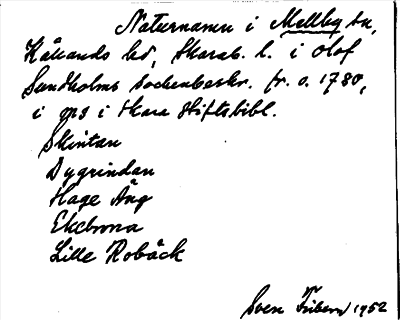 Naturnamn i Mellby sn,
Kållands hd, Skarab. l. i Olof
Sundholms sockenbeskr. fr. o. 1780,
i ms i Skara Stiftsbibl.
Skintan
Dygrindan
Hage Äng
Ekebrona
Lille Robäck
Sven Friberg 1952